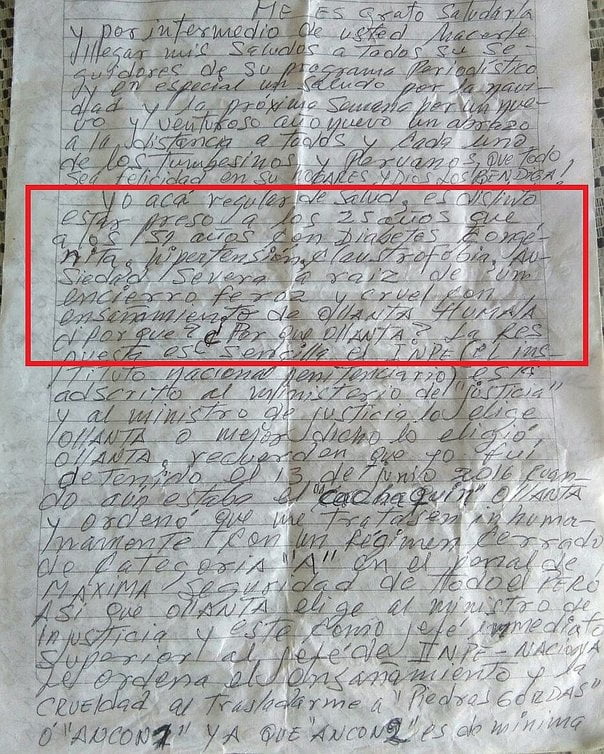 ME ES grato saludarla
y por intermedio de usted hacerle
llegar mis saludos a todos su se-
guidores de su programa Periodistico
y en especial un saludo por la navi-
dad y la próxima semana por un nue-
vo y venturoso año nuevo un abrazo
a la distancia a todos y cada uno
de los tumbesinos y Peruanos, que todo
sea felicidad en su HOGARES Y DIOS LOS BENDIGA!
Yo aca regular de salud, es distinto
estar preso a los 25 años que
a los 54 años con Diabetes Conge-
nita, hipertension, claustrofobia, An-
siedad Severa a raiz de un
encierro feroz y cruel con
ensañamiento de OllANTA HUMALA
di por que? ¿Por que OllANTA? La Res
puesta es sencilla el INPE (El ins-
tituto nacional penitenciario) esta
adscrito al ministerio de "justicia"
y al ministro de justicia lo elige
OllANTA o mejor dicho lo eligió
OllANTA, recuerden que yo fui
detenido el 13 de junio 2016 cuan-
do aun estaba el "cachaquin" OllANTA
y ordenó que me tratasen inhuma-
namente con un Régimen cerrado
de categoria "A" en el penal de
MAXIMA seguridad de todo el PERÚ
ASI que OllANTA elige al ministro de
injusticia y este como jefe inmediato
superior al jefe de INPE-NACIONAL
le ordena el ensañamiento y la
CRUELDAD al Trasladarme a "Piedras GORDAS"
O "ANCON1" YA QUE "ANCON2" es de minima